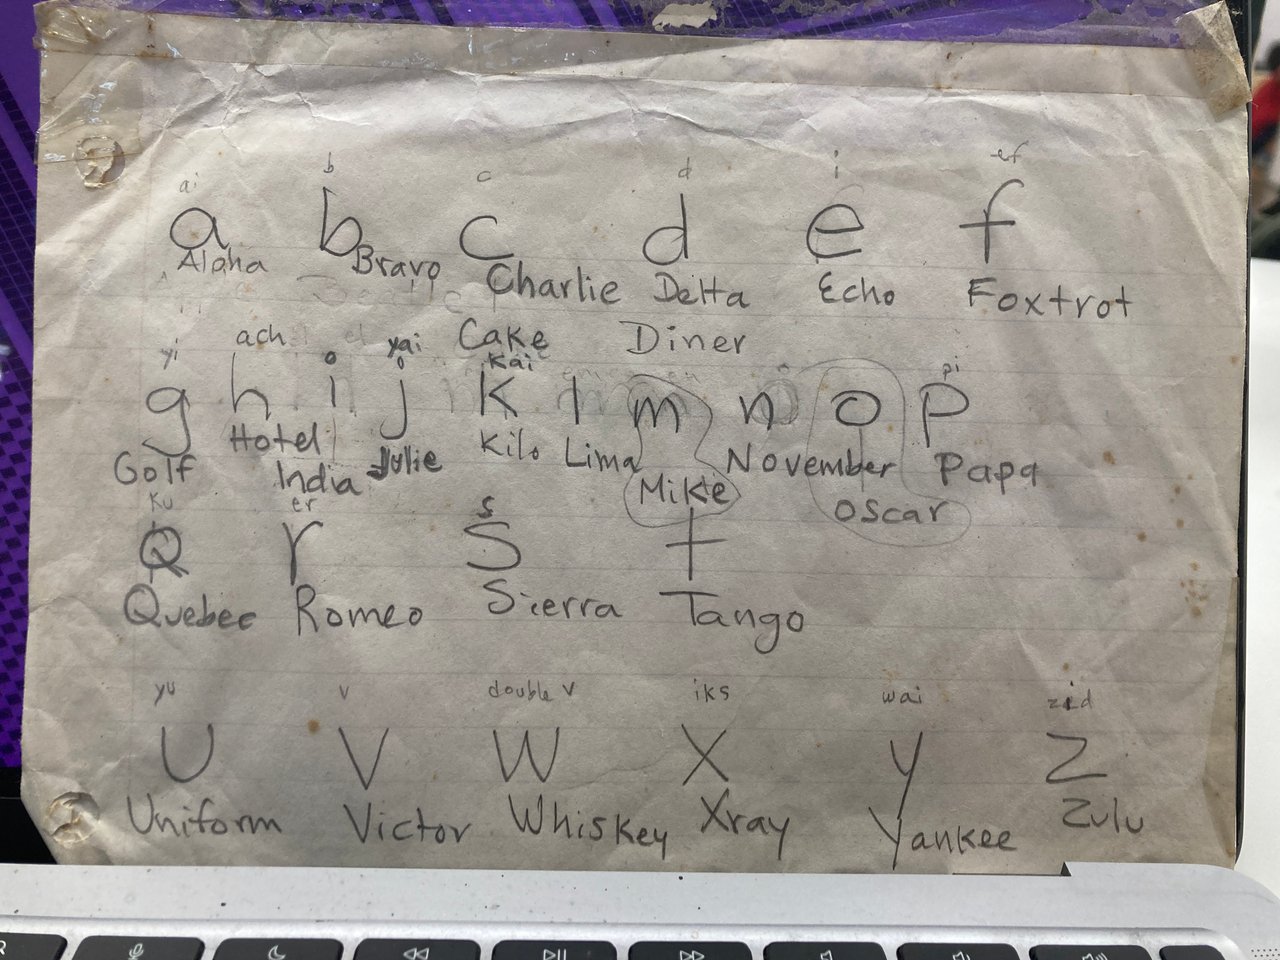 ai b c d i ef
a b c d e f
Alpha Bravo Charlie Delta Echo Foxtrot
Cake Diner
yi ach yai kai pi
g h i j k l m n o p
Hotel Kilo Lima November Papa
Golf India Julie Mike Oscar
Ku er s
Q r S t
Quebec Romeo Sierra Tango
yu v double v iks wai zed
U V W X y Z
Uniform Victor Whiskey Xray Yankee Zulu